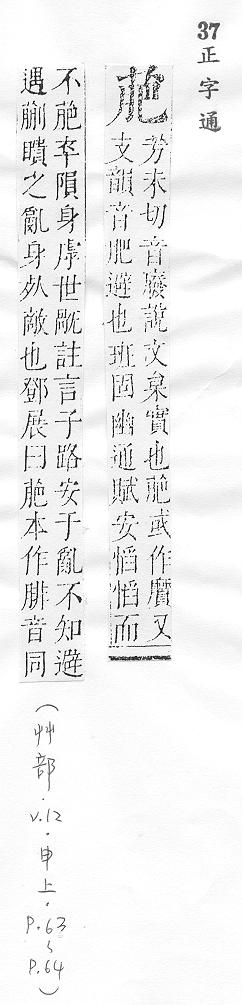 37 正字通
萉
芳未切音廢說文枲實也萉或作黂又
支韻音肥避也班固幽通賦安慆慆而
不萉卒隕身虖世旤註言子路安于亂不知避
遇蒯聵之亂身死敵也鄧展曰萉本作腓音同
(艸部.v.12.申上.P.63~P.64)